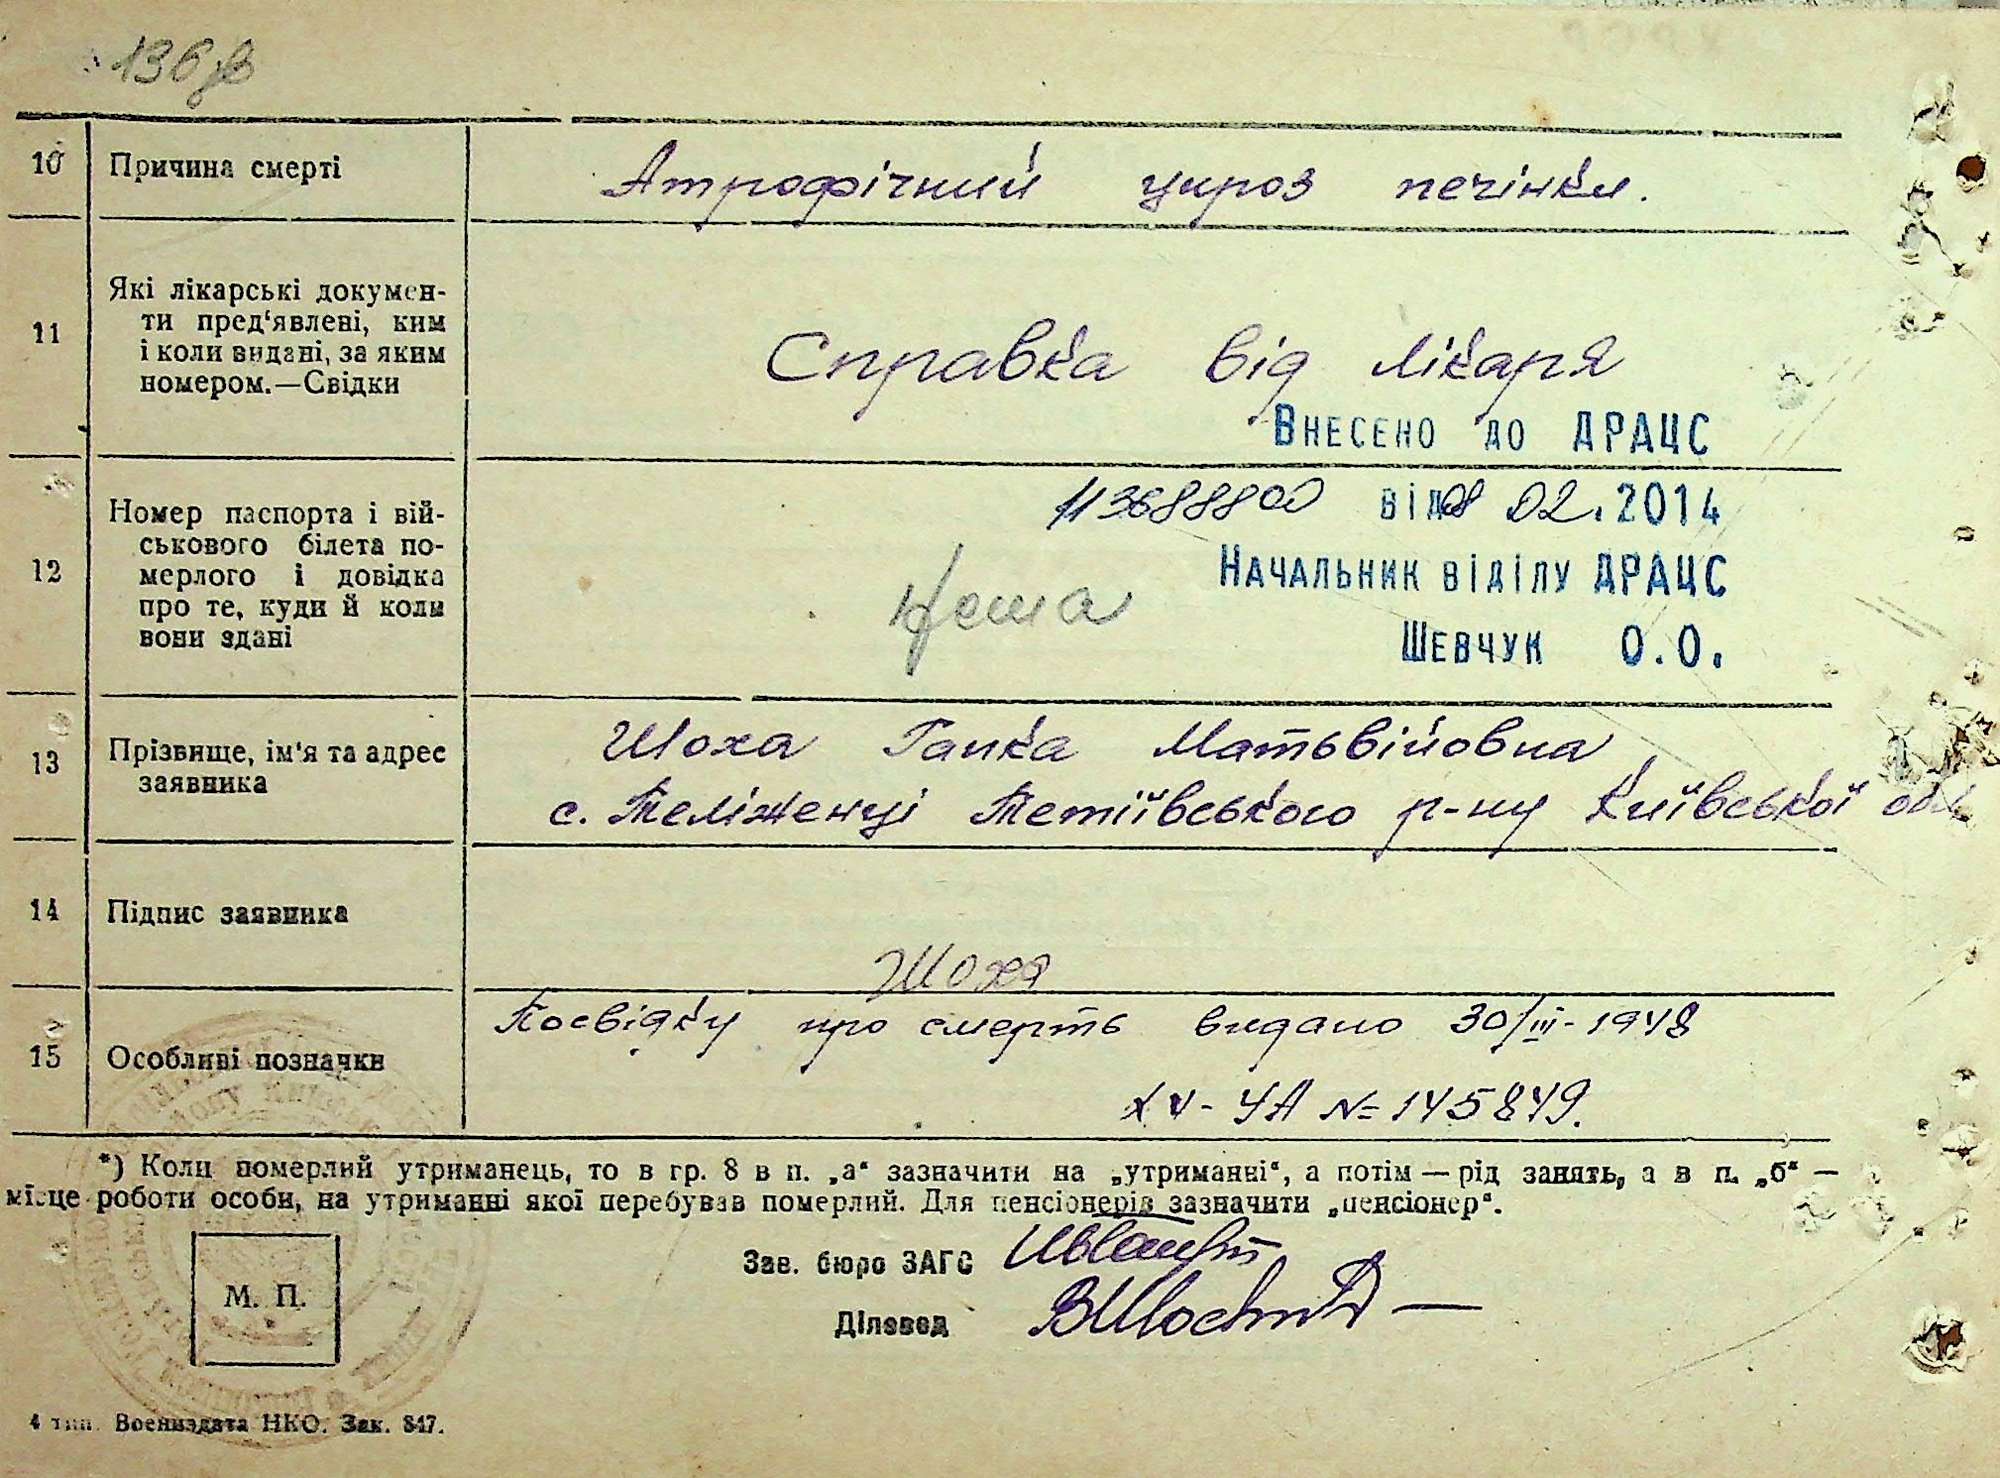 136
10 Причина смерті Атрофічний цироз печінки.
11 Які лікарські докумен-
ти пред'явлені, ким
і коли видані, за яким
номером.—Свідки
Справка від лікаря
Внесено до ДРАЦС
12 Номер паспорта і вій-
ськового білета по-
мерлого і довідка
про те, куди й коли
вони здані
від 08 02.2014
Начальник відділу ДРАЦС
Нема
Шевчук О.О.
13 Прізвище, ім'я та адрес
заявника
Шоха Ганка Матьвійовна
с. Теліженці Тетіївського р-ну Київської обл
14 Підпис заявника
Шоха
15 Особливі позначки
Посвідку про смерть видано 30/III-1948
ХV-УА №145849.
*) Коли померлий утриманець, то в гр. 8 в п. „а“ зазначити на „утриманні“, а потім — рід занять, а в п. „б“ —
місце роботи особи, на утриманні якої перебував померлий. Для пенсіонерів зазначити „пенсіонер“.
Зав. бюро ЗАГС
М. П.
Діловод
4 тип. Воениздата НКО. Зак. 847.